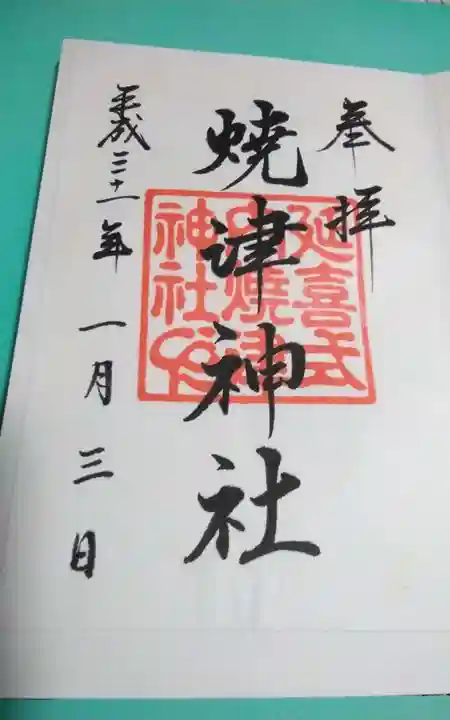 奉拝
焼津神社
延喜式
内焼津
神社
平成三十一年一月三日